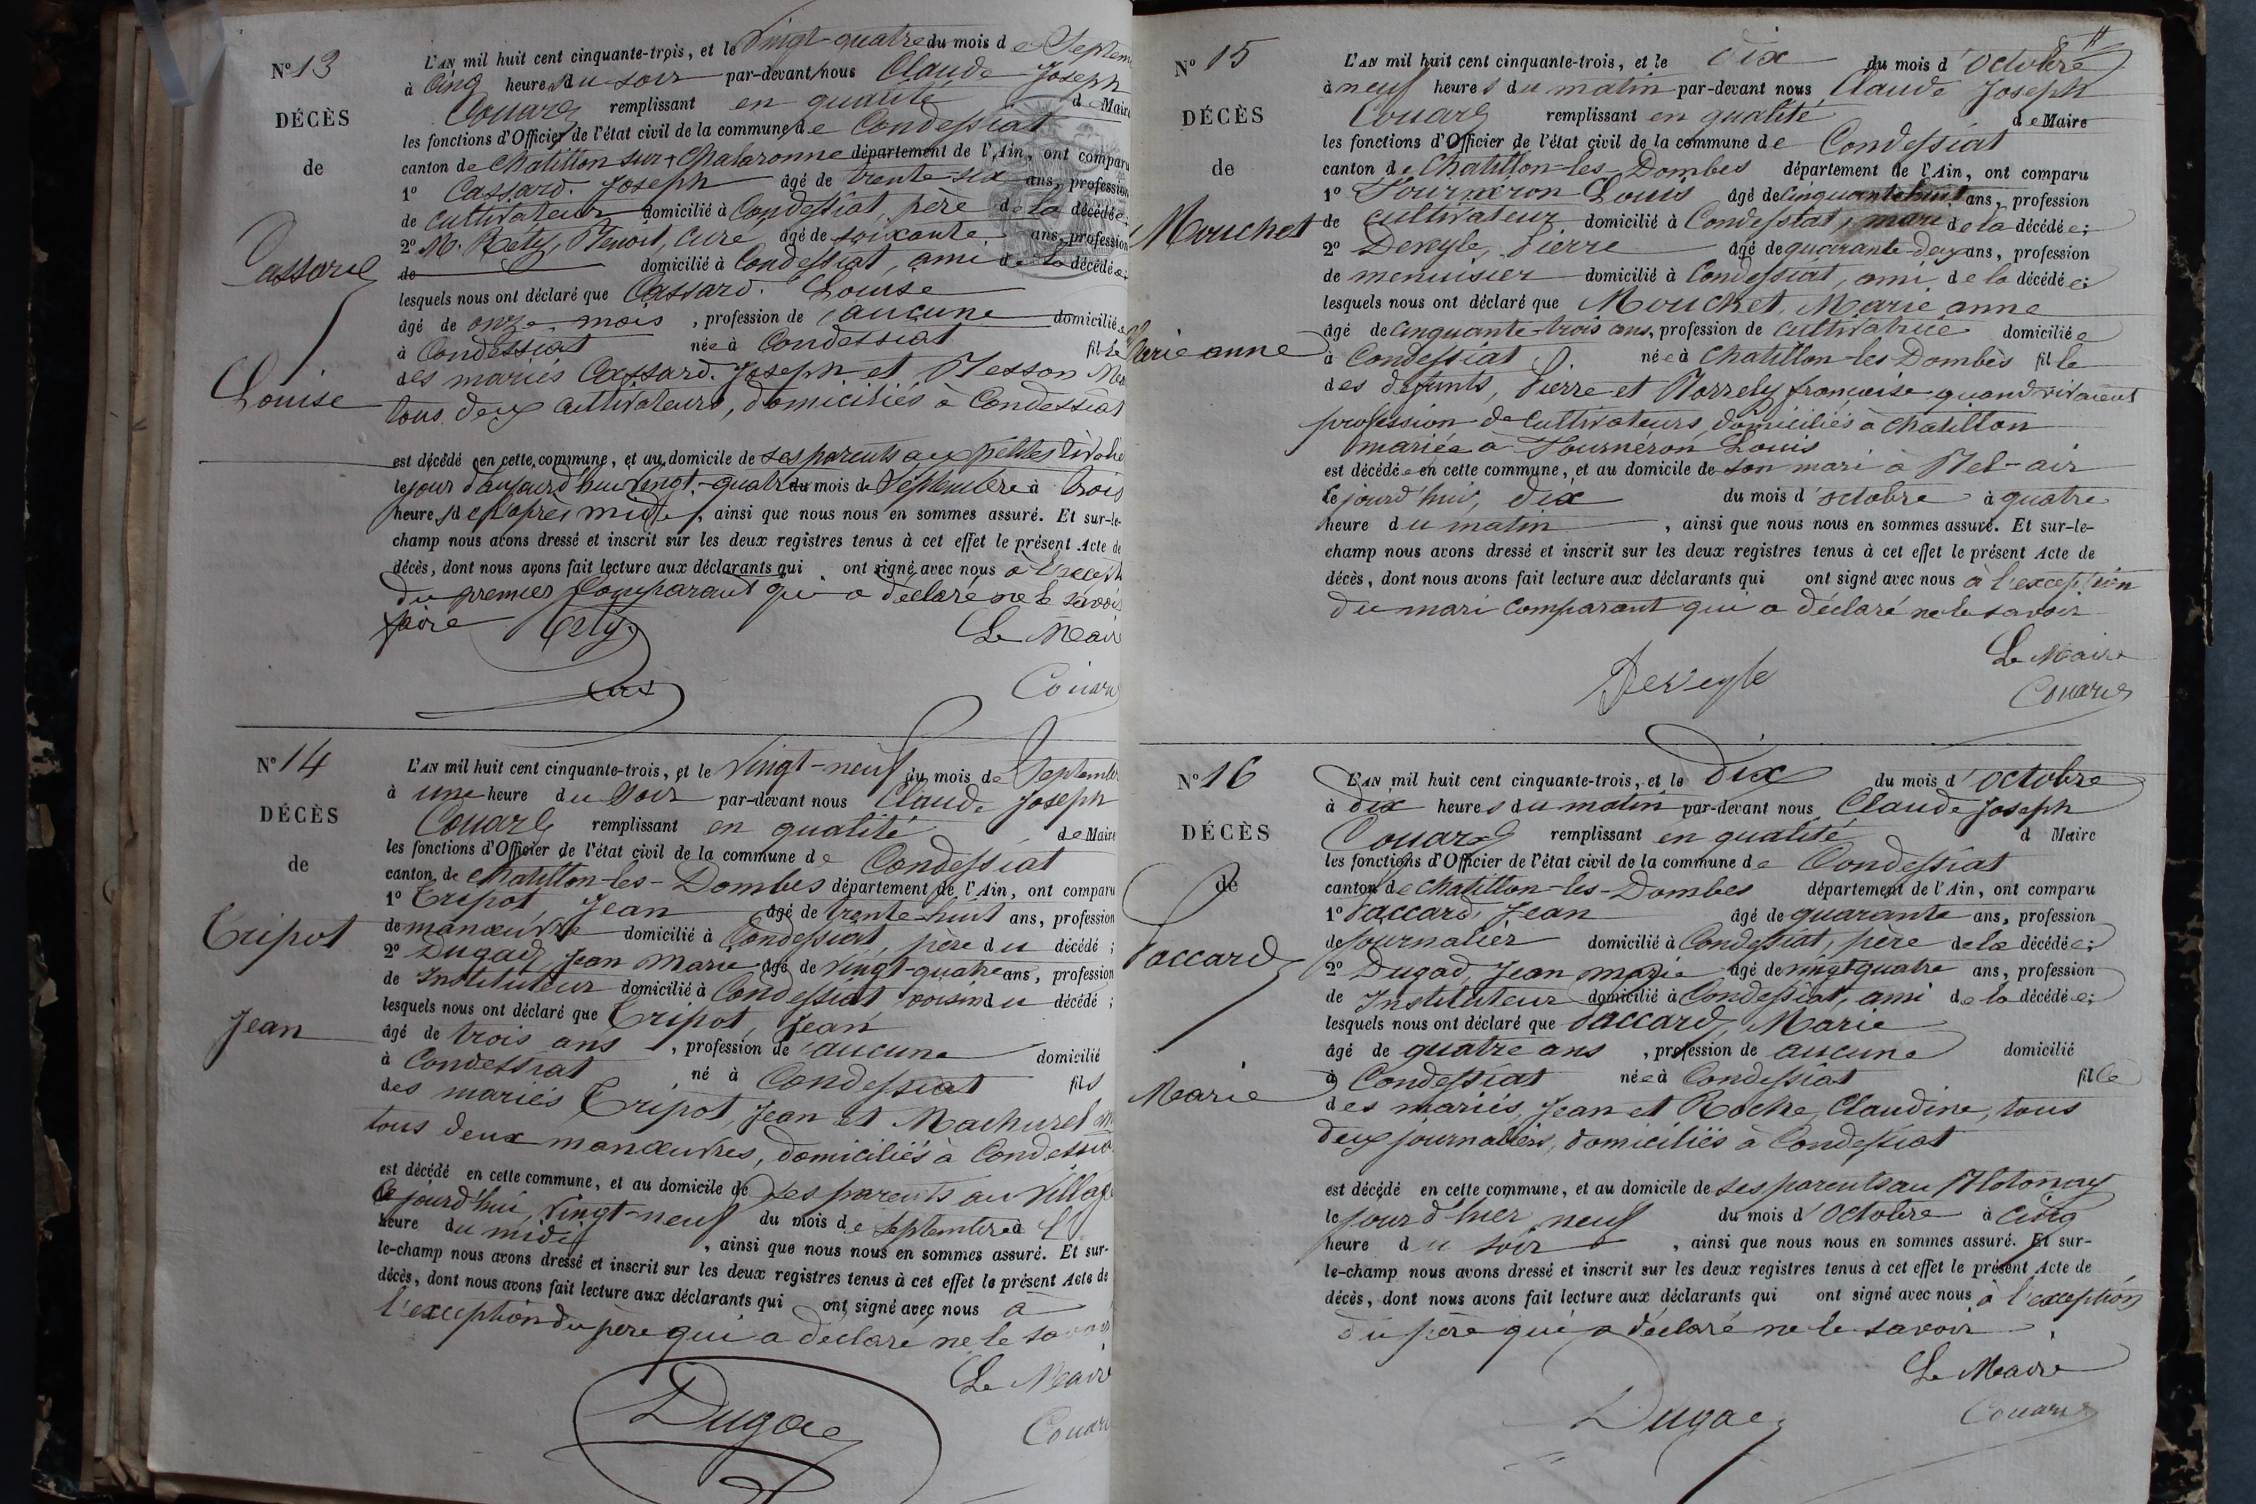 N° 13
DÉCÈS
de
Cassard
Louise
L'AN mil huit cent cinquante-trois, et le Vingt-quatre du mois de Septem
à cinq heures du soir par-devant nous Claude Joseph
Couard remplissant en qualité de Maire
les fonctions d'Officier de l'état civil de la commune de Condessiat
canton de Chatillon sur Chalaronne département de l'Ain, ont comparu
1° Cassard Joseph âgé de trente-six ans, profession
de cultivateur domicilié à Condessiat, père de la décédée
2° M. Réty, Benoit, curé âgé de soixante ans, profession
de domicilié à Condessiat, ami de la décédée
lesquels nous ont déclaré que Cassard Louise
âgé de onze mois, profession de aucune domiciliée
à Condessiat née à Condessiat fille
des mariés Cassard Joseph et Besson
tous deux cultivateurs, domiciliés à Condessiat
est décédé en cette commune, et au domicile de ses parents aux petites
le jour d'aujourd'hui vingt-quatre du mois de Septembre à trois
heures de l'après midi, ainsi que nous nous en sommes assuré. Et sur-le-
champ nous avons dressé et inscrit sur les deux registres tenus à cet effet le présent Acte de
décès, dont nous avons fait lecture aux déclarants qui ont signé avec nous à l'except
du premier comparant qui a déclaré ne le savoir
faire Réty
Le Maire
curé
Couard
N° 14
DÉCÈS
de
Tripot
Jean
L'AN mil huit cent cinquante-trois, et le Vingt-neuf du mois de Septembre
à une heure du soir par-devant nous Claude Joseph
Couard remplissant en qualité de Maire
les fonctions d'Officier de l'état civil de la commune de Condessiat
canton de Chatillon-les-Dombes département de l'Ain, ont comparu
1° Tripot Jean âgé de trente-huit ans, profession
de manœuvre domicilié à Condessiat, père du décédé ;
2° Dugad, Jean Marie âgé de vingt-quatre ans, profession
de Instituteur domicilié à Condessiat voisin du décédé ;
lesquels nous ont déclaré que Tripot, Jean
âgé de trois ans, profession de aucune domicilié
à Condessiat né à Condessiat fils
des mariés Tripot, Jean et Machurel
tous deux manœuvres, domiciliés à Condessia
est décédé en cette commune, et au domicile de ses parents au Village
le jourd'hui vingt-neuf du mois de septembre à
heure du midi, ainsi que nous nous en sommes assuré. Et sur-
le-champ nous avons dressé et inscrit sur les deux registres tenus à cet effet le présent Acte de
décès, dont nous avons fait lecture aux déclarants qui ont signé avec nous à
l'exception du père qui a déclaré ne le savoir
Le Maire
Dugad
Couard
N° 15
DÉCÈS
de
Mouchet
Marie anne
L'AN mil huit cent cinquante-trois, et le dix du mois d'octobre
à neuf heures du matin par-devant nous Claude Joseph
Couard remplissant en qualité de Maire
les fonctions d'Officier de l'état civil de la commune de Condessiat
canton de Chatillon-les-Dombes département de l'Ain, ont comparu
1° Tourneron Louis âgé de cinquante huit ans, profession
de cultivateur domicilié à Condessiat, mari de la décédée ;
2° Deveyle, Pierre âgé de quarante-deux ans, profession
de menuisier domicilié à Condessiat, ami de la décédée ;
lesquels nous ont déclaré que Mouchet, Marie anne
âgé de cinquante-trois ans, profession de cultivatrice domiciliée
à Condessiat née à Chatillon-les-Dombes fille
des défunts, Pierre et françoise quand vivaient
profession de cultivateurs domiciliés à Chatillon
mariée à Tournéron Louis
est décédée en cette commune, et au domicile de son mari à Bel-air
le jourd'hui, dix du mois d'octobre à quatre
heure du matin, ainsi que nous nous en sommes assuré. Et sur-le-
champ nous avons dressé et inscrit sur les deux registres tenus à cet effet le présent Acte de
décès, dont nous avons fait lecture aux déclarants qui ont signé avec nous à l'exception
du mari comparant qui a déclaré ne le savoir
Le Maire
Deveyle
Couard
N° 16
DÉCÈS
de
Paccard
Marie
L'AN mil huit cent cinquante-trois, et le Dix du mois d'octobre
à dix heures du matin par-devant nous Claude Joseph
Couard remplissant en qualité d Maire
les fonctions d'Officier de l'état civil de la commune de Condessiat
canton de Chatillon-les-Dombes département de l'Ain, ont comparu
1° Paccard, Jean âgé de quarante ans, profession
de journalier domicilié à Condessiat, père de la décédée ;
2° Dugad, Jean marie âgé de vingt quatre ans, profession
de Instituteur domicilié à Condessiat, ami de la décédée ;
lesquels nous ont déclaré que Paccard, Marie
âgé de quatre ans, profession de aucune domicilié
à Condessiat née à Condessiat fille
des mariés, Jean et Roche, Claudine, tous
deux journaliers, domiciliés à Condessiat
est décédé en cette commune, et au domicile de ses parents au
le jour d'hier neuf du mois d'octobre à cinq
heure du soir, ainsi que nous nous en sommes assuré. Et sur-
le-champ nous avons dressé et inscrit sur les deux registres tenus à cet effet le présent Acte de
décès, dont nous avons fait lecture aux déclarants qui ont signé avec nous à l'exception
du père qui a déclaré ne le savoir.
Le Maire
Dugad
Couard